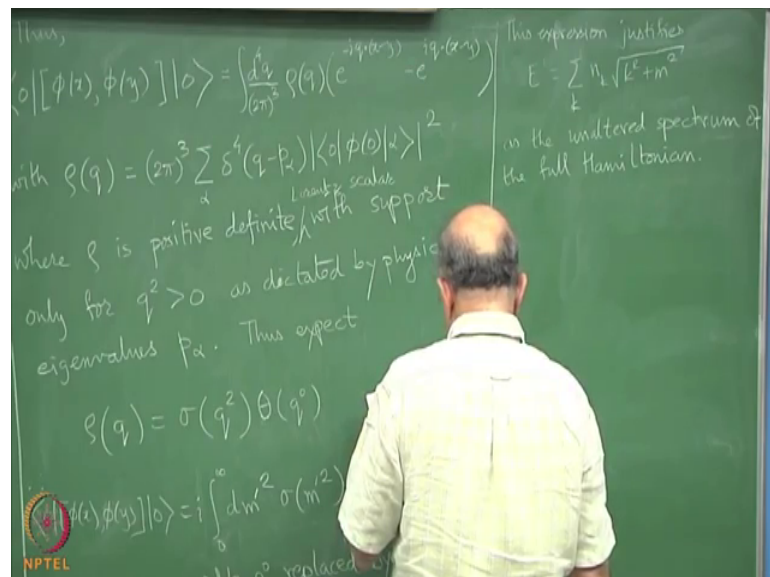 Thus,
⟨0|[ϕ(x), ϕ(y)]|0⟩ = ∫ d⁴q/(2π)³ ρ(q)(e^{-iq·(x-y)} - e^{iq·(x-y)})
with ρ(q) = (2π)³ Σ_α δ⁴(q-p_α)|⟨0|ϕ(0)|α⟩|²
Lorentz scalar
where ρ is positive definite, ∧ with support
only for q² > 0 as dictated by physic
eigenvalues p_α. Thus expect
ρ(q) = σ(q²) θ(q⁰)
⟨0|[ϕ(x), ϕ(y)]|0⟩ = i ∫₀^∞ dm'² σ(m'²)
q⁰ replaced by
This expression justifies
E = Σ_k n_k √(k² + m²)
as the unaltered spectrum of
the full Hamiltonian.
NPTEL